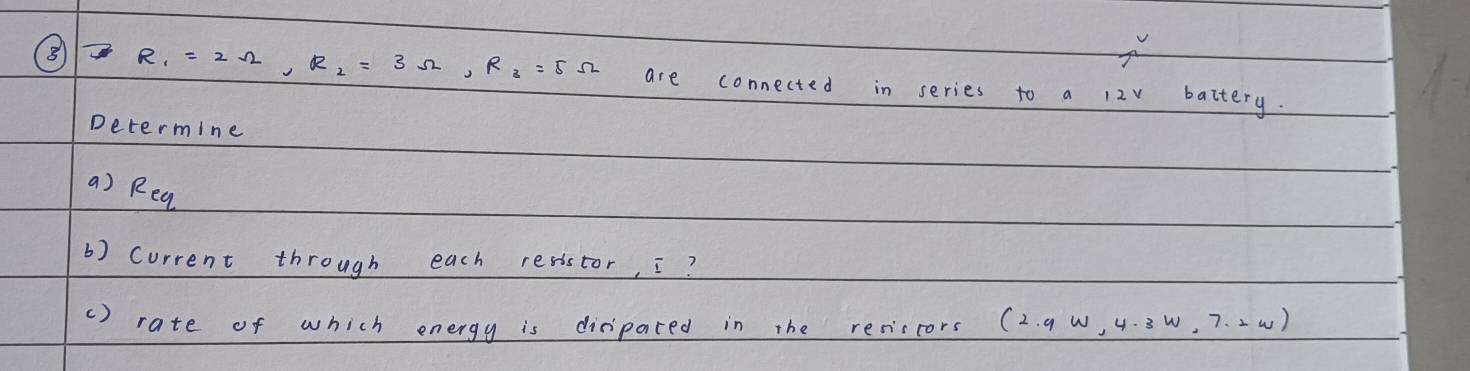 ③ R₁ = 2 Ω, R₂ = 3 Ω, R₃ = 5 Ω are connected in series to a 12V battery.
Determine
a) Req
b) Current through each resistor, I ?
c) rate of which energy is disipated in the resistors (2.9 W, 4.3 W, 7.2 W)